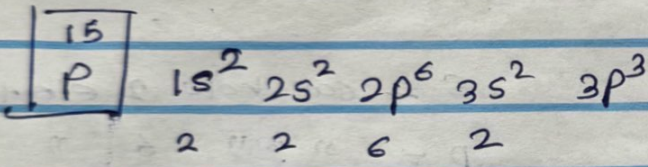 15
P 1s² 2s² 2p⁶ 3s² 3p³
2 2 6 2